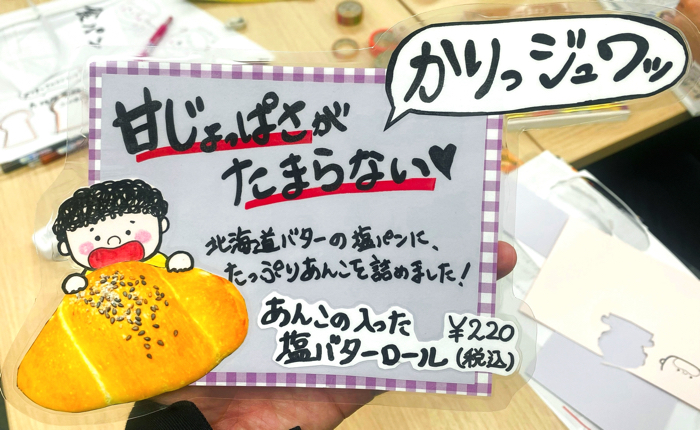 かりっジュワッ
甘じょっぱさが
たまらない♥
北海道バターの塩パンに、
たっぷりあんこを詰めました!
あんこの入った
塩バターロール
¥220
(税込)